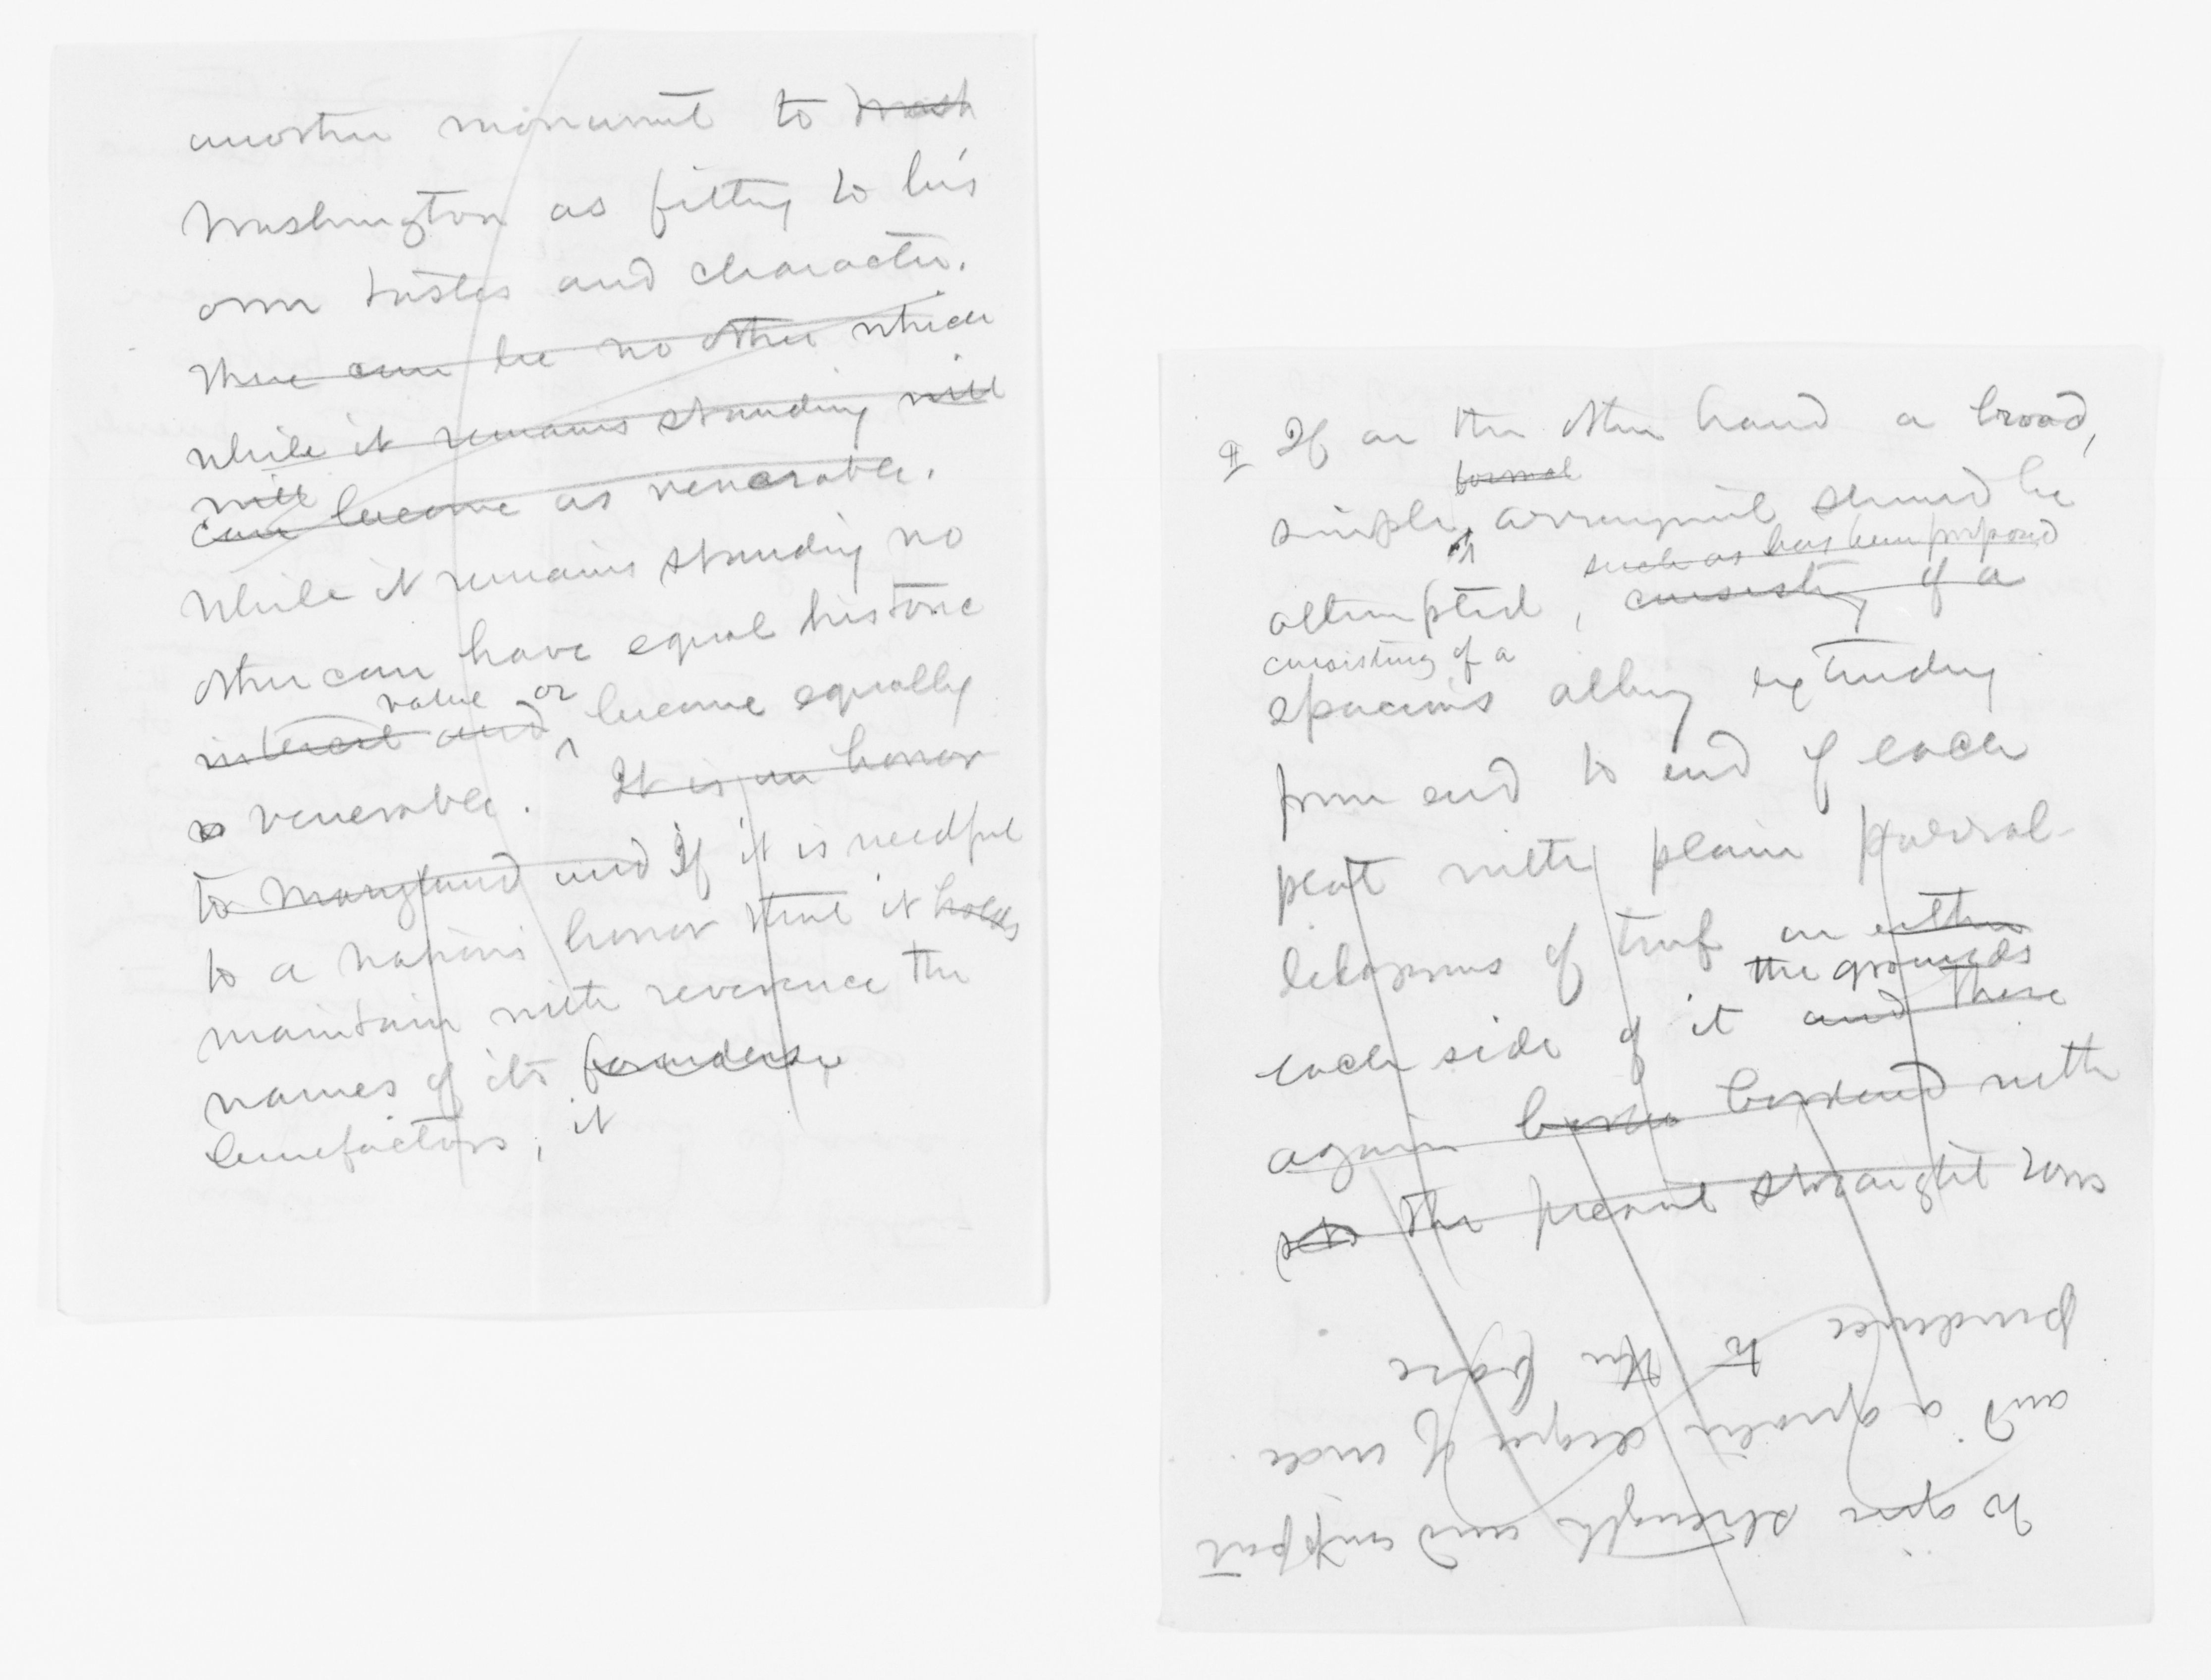 another monument to Wash
Washington as fitting to his
own tastes and character.
There can be no other which
while it remains standing will
will
can become as venerable.
While it remains standing no
other can have equal historic
value or
interest and become equally
venerable. It is an honor
to Maryland and If it is needful
to a nation's honor that it holds
maintain with reverence the
names of its founders,
benefactors, it
If on the other hand a broad,
formal
simple, arrangement should be
such as has been proposed
attempted, consisting of a
consisting of a
spacious alley extending
from end to end of each
plat with plain paral-
lelograms of turf on either
the grounds
each side of it and these
again border bordered with
the present straight rows
to give strength and support
and a greater degree of inde
pendence to the base